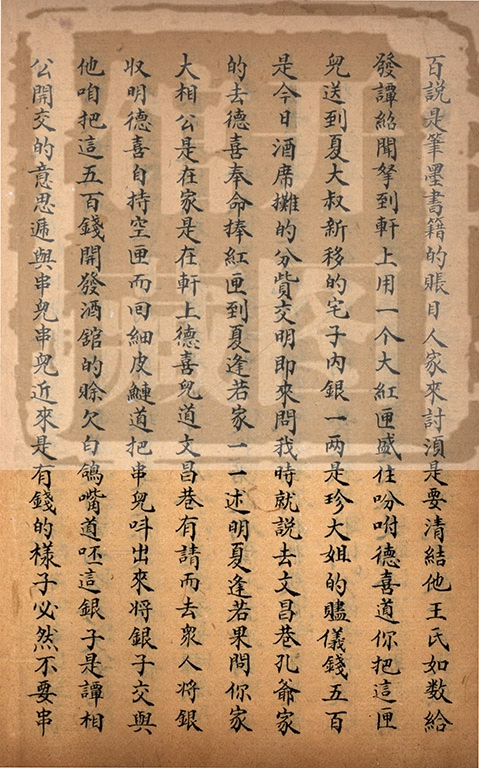 百説是筆墨書籍的賬目人家來討湏是要清結他王氏如数給
發譚紹聞拏到軒上用一个大紅匣盛住吩咐德喜道你把這匣
兒送到夏大叔新移的宅子內銀一两是珍大姐的贐儀錢五百
是今日酒席攤的分貲交明即來問我時就説去文昌巷孔爺家
的去德喜奉命捧紅匣到夏逢若家一一述明夏逢若果問你家
大相公是在家是在軒上德喜兒道文昌巷有請而去衆人将銀
収明德喜自持空匣而回細皮鰱道把串兒呌出來将銀子交與
他咱把這五百錢開發酒舘的賒欠白鴿嘴道呸這銀子是譚相
公開交的意思逓與串兒串兒近來是有錢的樣子必然不要串